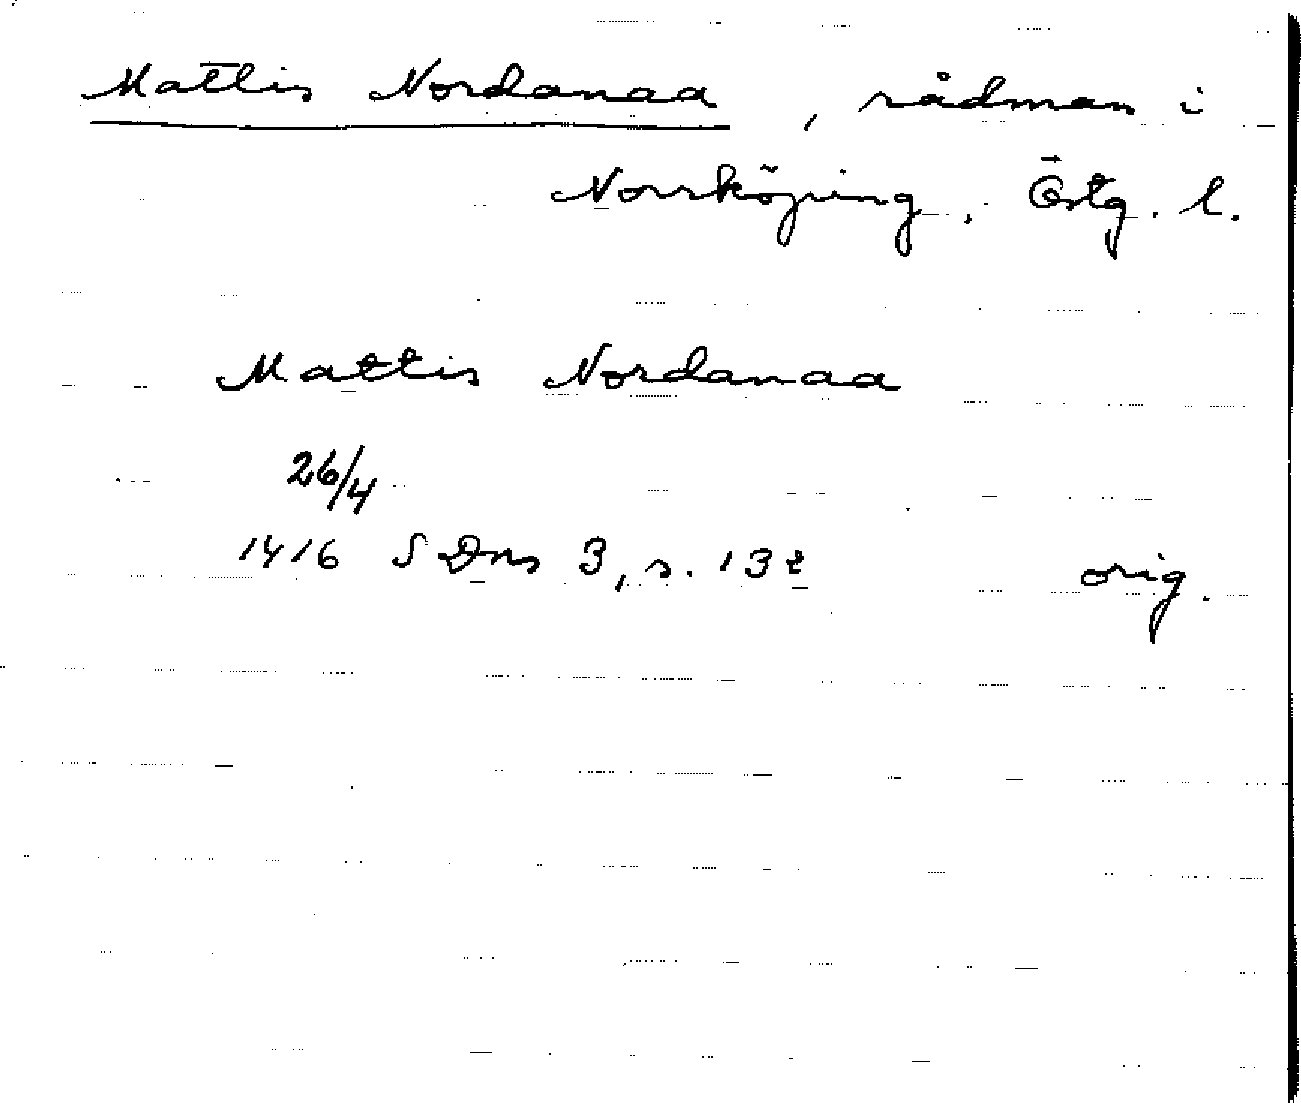 Mattis Nordanaa, rådman i
Norrköping, Östg. l.
Mattis Nordanaa
26/4
1416 SDns 3, s. 132 orig.